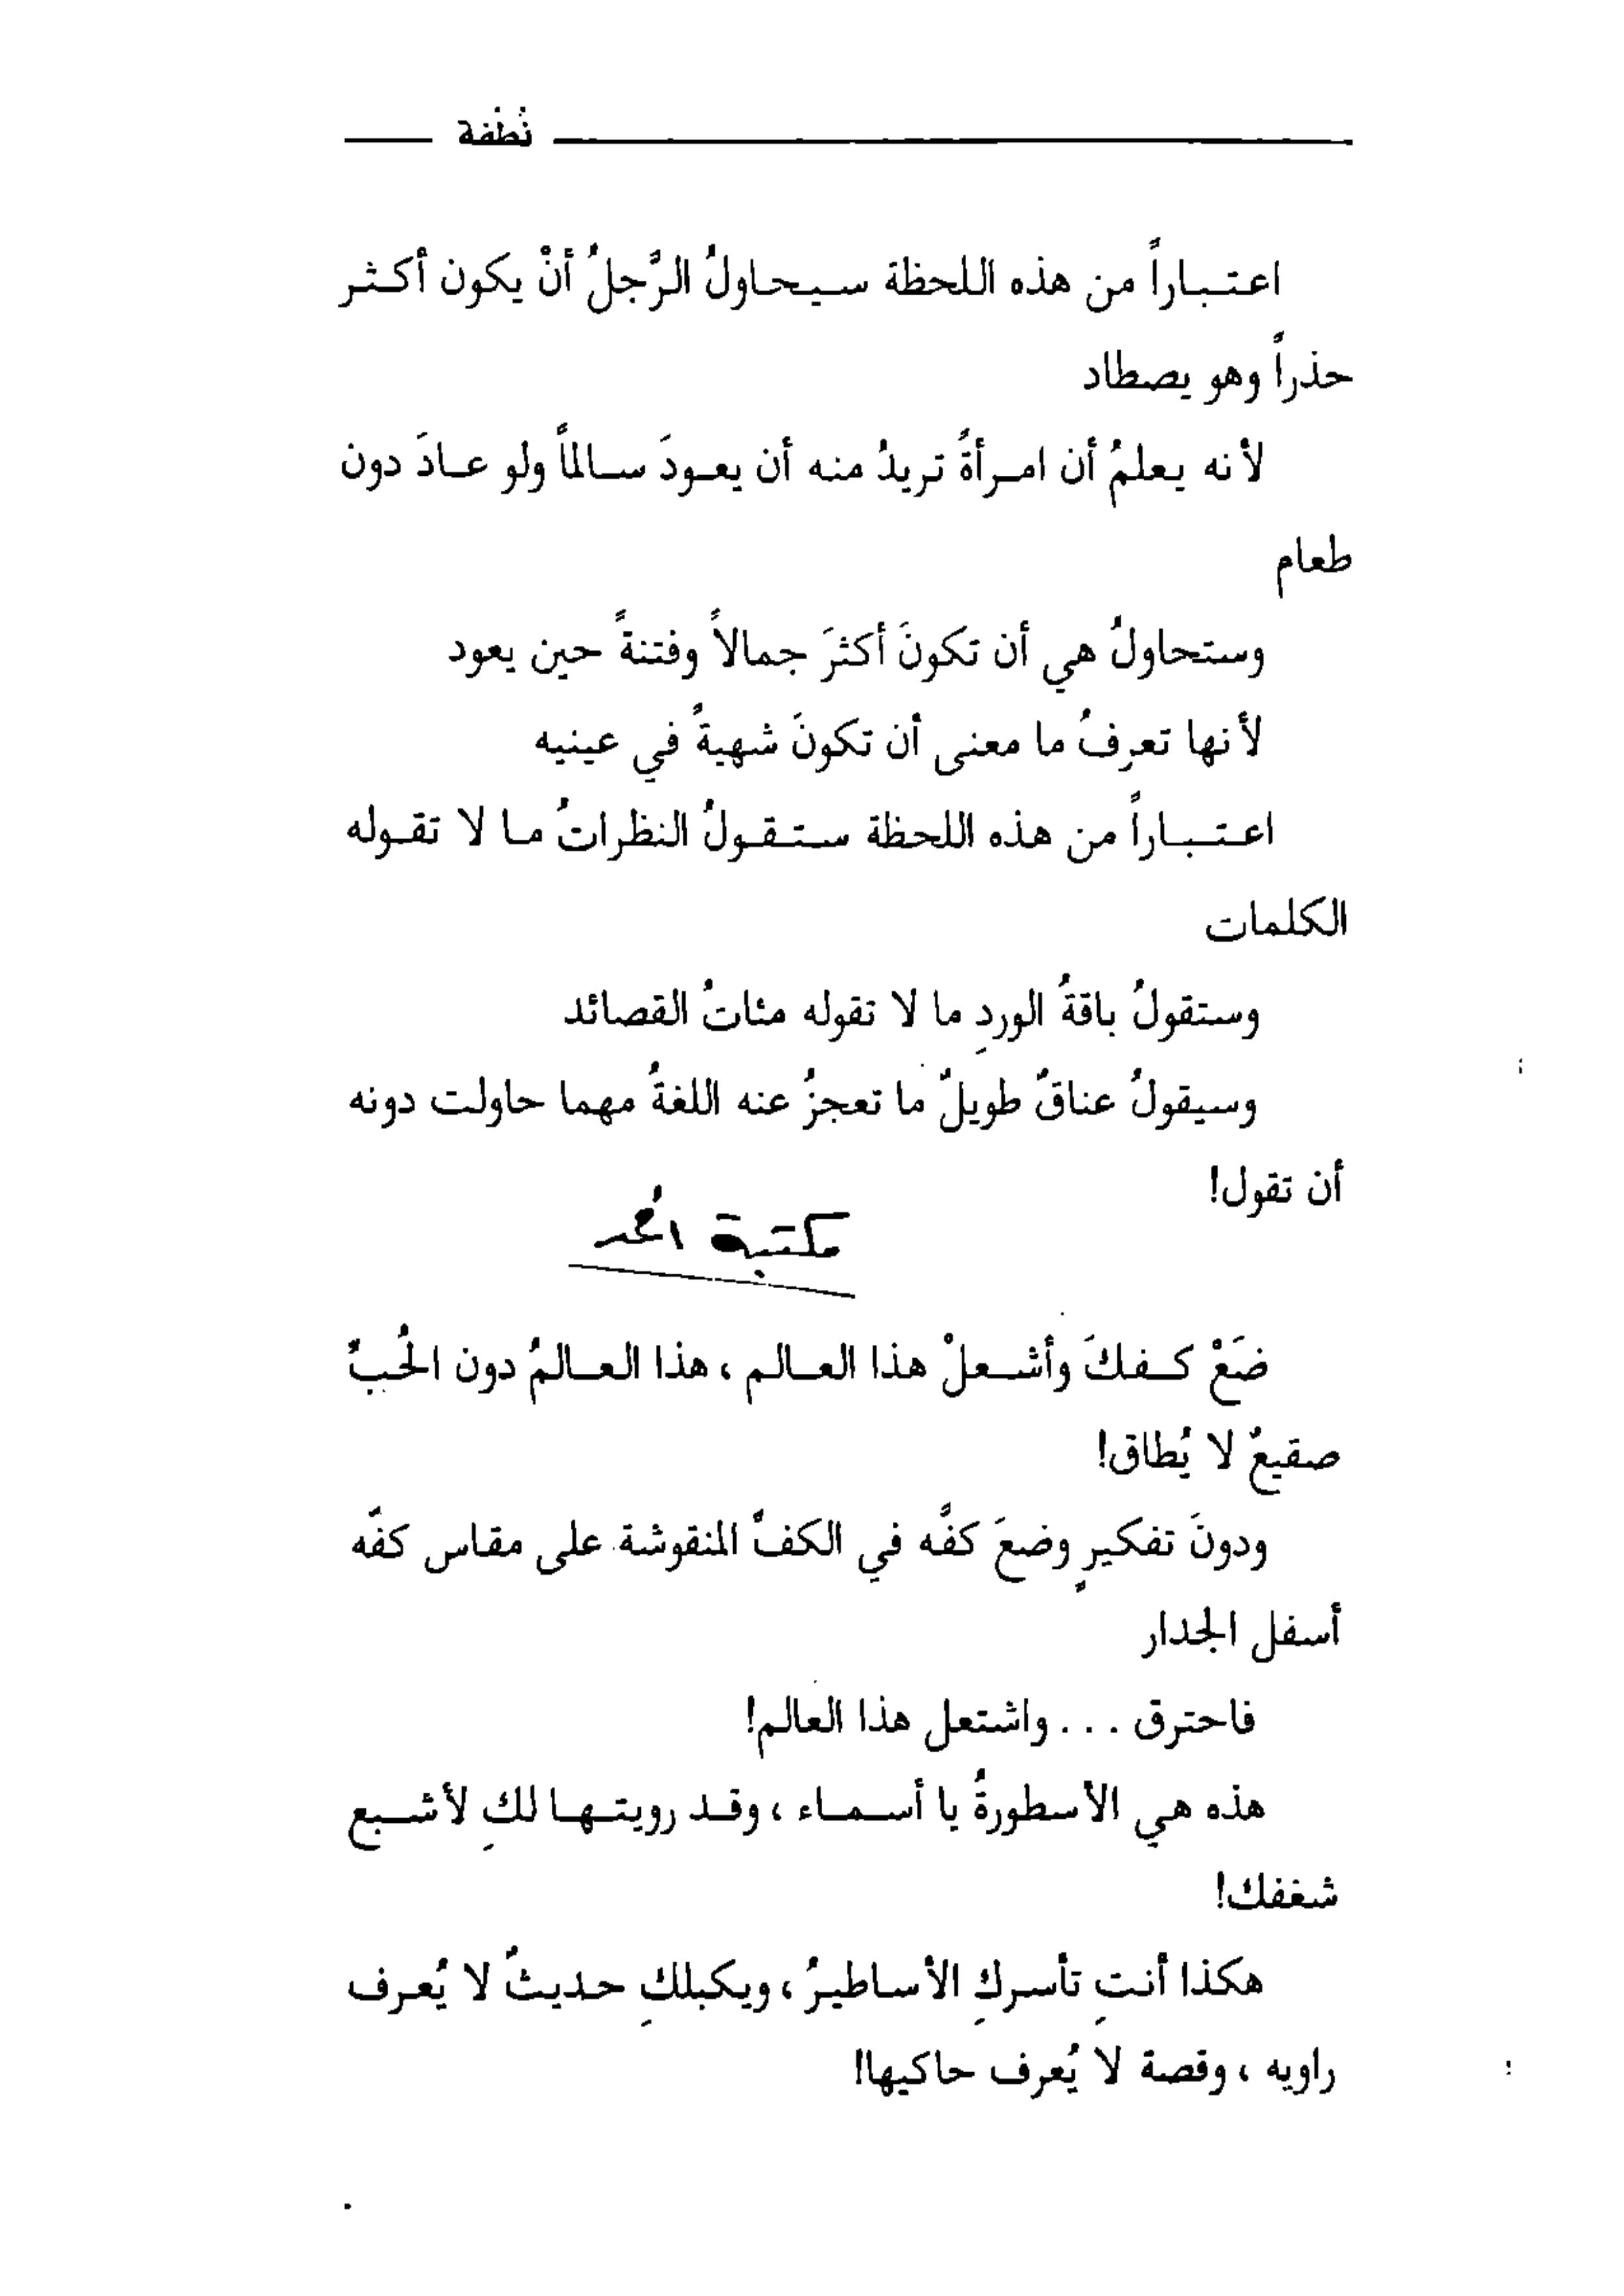 نُطْفة
اعتباراً من هذه اللحظة سيحاولُ الرَّجلُ أنْ يكون أكثر
حذراً وهو يصطاد
لأنه يعلمُ أن امرأةً تريدُ منه أن يعودَ سالماً ولو عادَ دون
طعام
وستحاولُ هي أن تكونَ أكثرَ جمالاً وفتنةً حين يعود
لأنها تعرِفُ ما معنى أن تكونَ شهيةً في عينيه
اعتباراً من هذه اللحظة ستقولُ النظراتُ ما لا تقوله
الكلمات
وستقولُ باقةُ الوردِ ما لا تقوله مئاتُ القصائد
وسيقولُ عناقٌ طويلٌ ما تعجزُ عنه اللغةُ مهما حاولت دونه
أن تقول!
مكتبة
ضَعْ كفكَ وأشعلْ هذا العالم، هذا العالمُ دون الحُبِّ
صقيعٌ لا يُطاق!
ودونَ تفكيرٍ وضعَ كفَّه في الكفِّ المنقوشة على مقاس كفّه
أسفل الجدار
فاحترق ... واشتعل هذا العالم!
هذه هي الأسطورةُ يا أسماء، وقد رويتها لكِ لأشبع
شغفك!
هكذا أنتِ تأسركِ الأساطيرُ، ويكبلكِ حديثٌ لا يُعرف
راويه، وقصة لا يُعرف حاكيها!